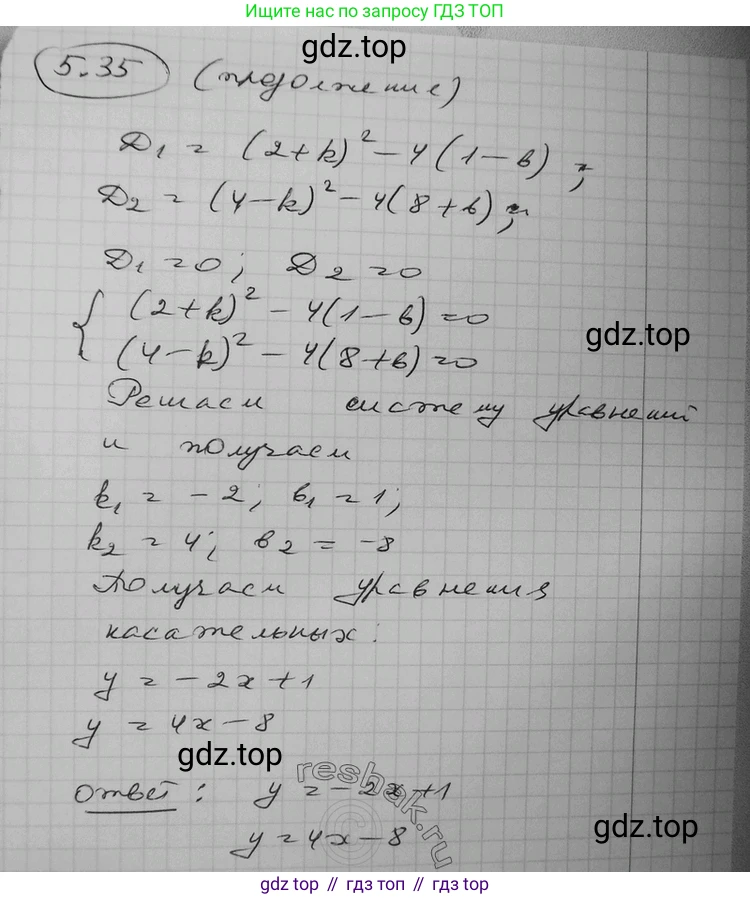 Ищите нас по запросу ГДЗ ТОП
gdz.top
5.35 (продолжение)
D₁ = (2+k)² − 4(1−в);
D₂ = (4−k)² − 4(8+в);
D₁ = 0; D₂ = 0
{ (2+k)² − 4(1−в) = 0
(4−k)² − 4(8+в) = 0
gdz.top
Решаем систему уравнений
и получаем
k₁ = −2; в₁ = 1;
k₂ = 4; в₂ = −8
Получаем уравнения
касательных:
y = −2x+1
y = 4x−8
gdz.top
reshak.ru
©
Ответ: y = −2x+1
y = 4x−8
gdz.top
gdz.top // гдз топ // gdz.top